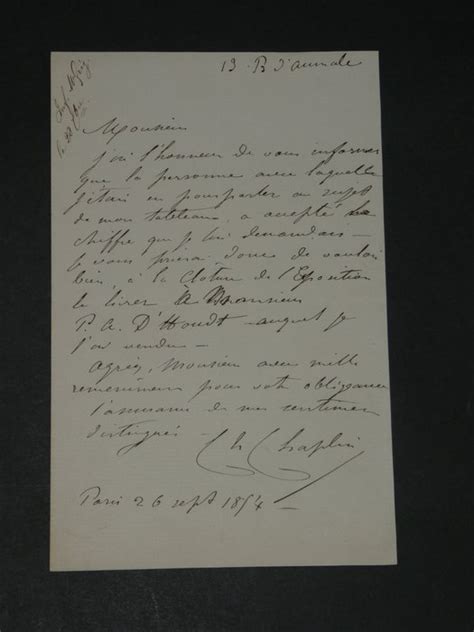 13 R d'aumale
Monsieur
j'ai l'honneur de vous informer
que la personne avec laquelle
j'étais en pourparler au sujet
de mon tableau, a accepté le
chiffre que je lui demandais —
je vous prierai donc de vouloir
bien, à la cloture de l'Exposition
le livrer à Monsieur
P. A. D'Houdt auquel je
l'ai vendu —
agréez, Monsieur avec mille
remerciemens pour votre obligeance
l'assurance de mes sentimens
distingués
Ch Chaplin
Paris 26 sept 1854 —